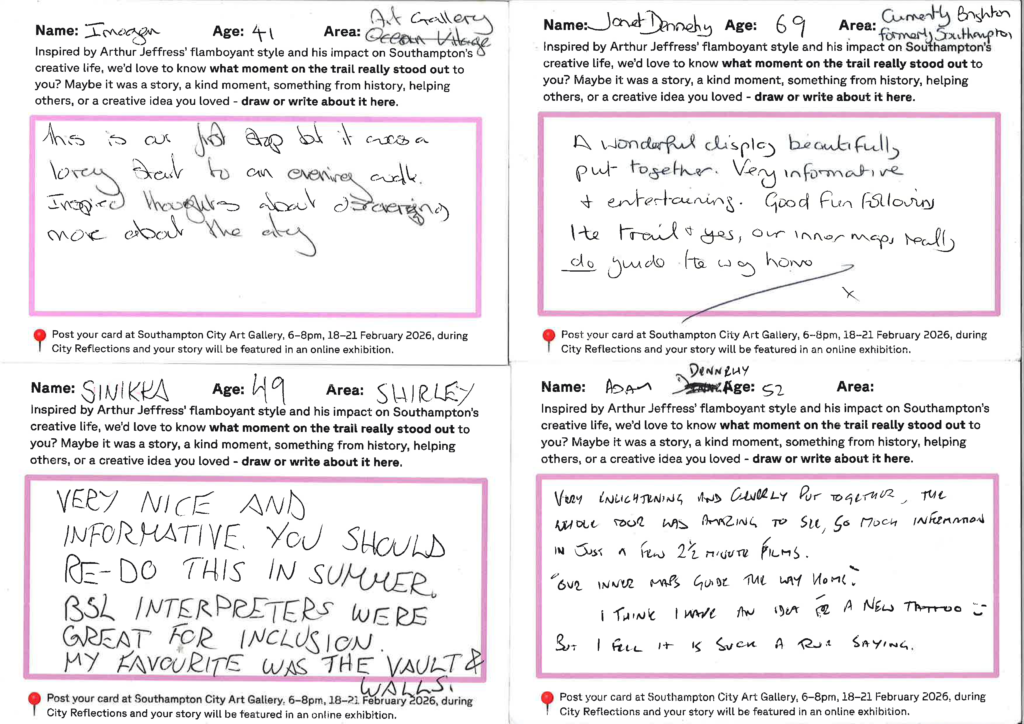 Name: Imogen Age: 41 Area: Art Gallery
Ocean Village
Inspired by Arthur Jeffress' flamboyant style and his impact on Southampton's
creative life, we'd love to know what moment on the trail really stood out to
you? Maybe it was a story, a kind moment, something from history, helping
others, or a creative idea you loved - draw or write about it here.
This is our first stop but it was a
lovely start to an evening walk.
Inspired thoughts about discovering
more about the city
Post your card at Southampton City Art Gallery, 6–8pm, 18–21 February 2026, during
City Reflections and your story will be featured in an online exhibition.
Name: Janet Dennehy Age: 69 Area: Currently Brighton
formerly Southampton
Inspired by Arthur Jeffress' flamboyant style and his impact on Southampton's
creative life, we'd love to know what moment on the trail really stood out to
you? Maybe it was a story, a kind moment, something from history, helping
others, or a creative idea you loved - draw or write about it here.
A wonderful display beautifully
put together. Very informative
+ entertaining. Good fun following
the trail + yes, our inner maps really
do guide the way home
x
Post your card at Southampton City Art Gallery, 6–8pm, 18–21 February 2026, during
City Reflections and your story will be featured in an online exhibition.
Name: SINIKKA Age: 49 Area: SHIRLEY
Inspired by Arthur Jeffress' flamboyant style and his impact on Southampton's
creative life, we'd love to know what moment on the trail really stood out to
you? Maybe it was a story, a kind moment, something from history, helping
others, or a creative idea you loved - draw or write about it here.
VERY NICE AND
INFORMATIVE. YOU SHOULD
RE-DO THIS IN SUMMER.
BSL INTERPRETERS WERE
GREAT FOR INCLUSION.
MY FAVOURITE WAS THE VAULT &
WALLS.
Post your card at Southampton City Art Gallery, 6–8pm, 18–21 February 2026, during
City Reflections and your story will be featured in an online exhibition.
Name: ADAM DENNEHY Age: 52 Area:
Inspired by Arthur Jeffress' flamboyant style and his impact on Southampton's
creative life, we'd love to know what moment on the trail really stood out to
you? Maybe it was a story, a kind moment, something from history, helping
others, or a creative idea you loved - draw or write about it here.
VERY ENLIGHTENING AND CLEVERLY PUT TOGETHER, THE
WHOLE TOUR WAS AMAZING TO SEE, SO MUCH INFORMATION
IN JUST A FEW 2½ MINUTE FILMS.
"OUR INNER MAPS GUIDE THE WAY HOME".
I THINK I HAVE AN IDEA FOR A NEW TATTOO
BUT I FEEL IT IS SUCH A TRUE SAYING.
Post your card at Southampton City Art Gallery, 6–8pm, 18–21 February 2026, during
City Reflections and your story will be featured in an online exhibition.